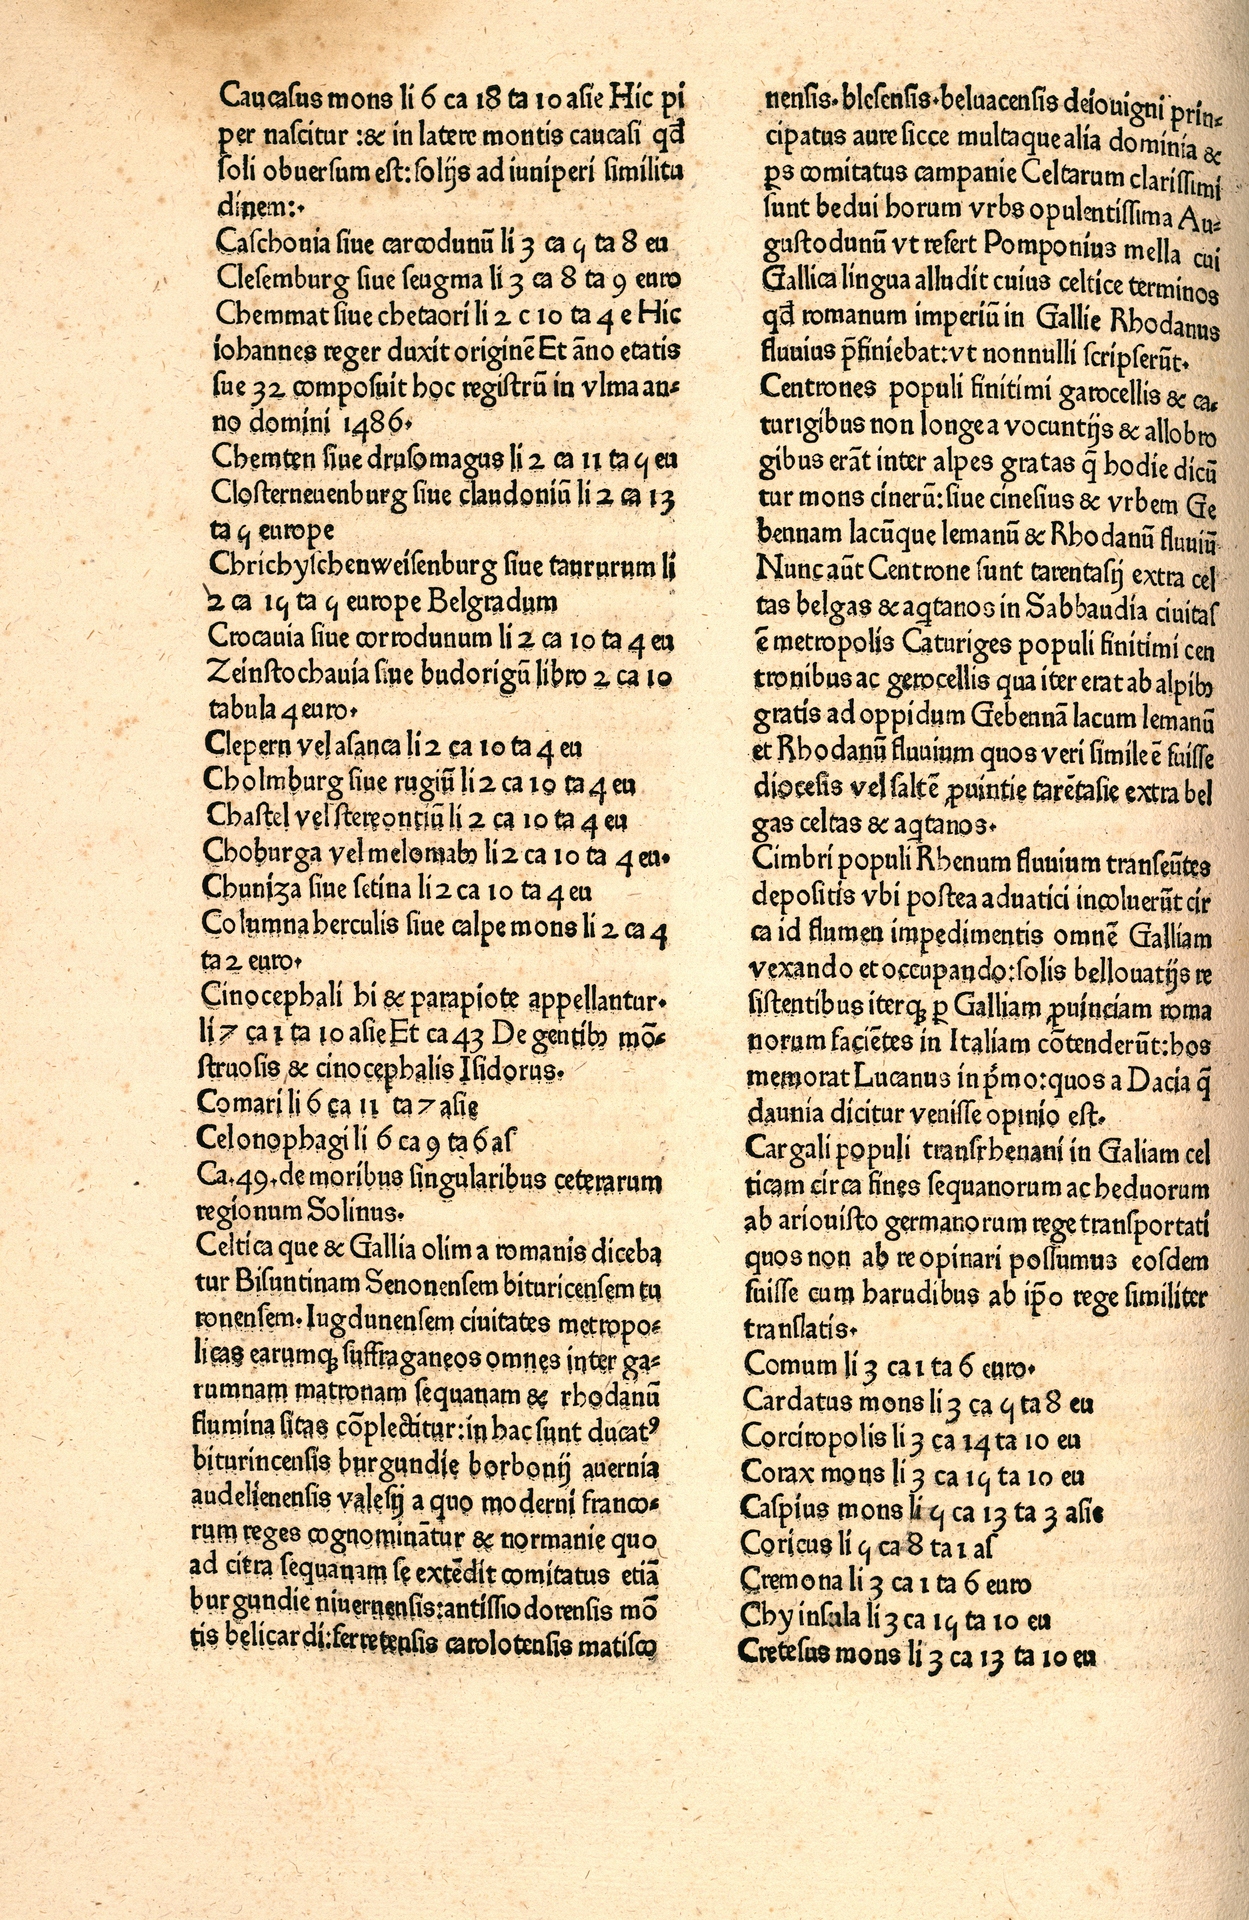 Caucasus mons li 6 ca 18 ta 10 asie Hic pi
per nascitur :& in latere montis caucasi qđ
soli obuersum est: solijs ad iuniperi similitu
dinem:·
Caschonia siue carcodunū li 3 ca 5 ta 8 eu
Clesemburg siue seugma li 3 ca 8 ta 9 euro
Chemmat siue chetaori li 2 c 10 ta 4 e Hic
iohannes reger duxit originē Et āno etatis
sue 32 composuit hoc registrū in vlma an⸗
no domini 1486·
Chemten siue drusomagus li 2 ca 11 ta 5 eu
Closterneuenburg siue claudoniū li 2 ca 13
ta 5 europe
Chrichyschenweisenburg siue taururum li
2 ca 15 ta 5 europe Belgradum
Crocauia siue corrodunum li 2 ca 10 ta 4 eu
Zeinstochauia siue budorigū libro 2 ca 10
tabula 4 euro·
Clepern vel asanca li 2 ca 10 ta 4 eu
Cholmburg siue rugiū li 2 ca 10 ta 4 eu
Chastel vel stereontiū li 2 ca 10 ta 4 eu
Choburga vel melomabꝫ li 2 ca 10 ta 4 eu·
Chuniza siue setina li 2 ca 10 ta 4 eu
Columna herculis siue calpe mons li 2 ca 4
ta 2 euro·
Cinocephali hi & parapiote appellantur·
li 7 ca 1 ta 10 asie Et ca 43 De gentibꝫ mō⸗
struosis & cinocephalis Isidorus·
Comari li 6 ca 11 ta 7 asie
Celonophagi li 6 ca 9 ta 6 as
Ca·49·de moribus singularibus ceterarum
regionum Solinus·
Celtica que & Gallia olim a romanis diceba
tur Bisuntinam Senonensem bituricensem tu
ronensem·lugdunensem ciuitates metropo⸗
licas earumqꝫ suffraganeos omnes inter ga⸗
rumnam matronam sequanam & rhodanū
flumina sitas cōplectitur: in hac sunt ducatꝰ
biturincensis burgundie borbonij auernia
audelienensis valesij a quo moderni franco⸗
rum reges cognominātur & normanie quo
ad citra sequanam se extēdit comitatus etiā
burgundie niuernensis:antissiodorensis mō
tis belicardi:ferretensis carolotensis matisco
nensis·blesensis·beluacensis deiouigni prin⸗
cipatus aure sicce multaque alia dominia &
ꝑs comitatus campanie Celtarum clarissimi
sunt hedui horum vrbs opulentissima Au⸗
gustodunū vt refert Pomponius mella cui
Gallica lingua alludit cuius celtice terminos
qđ romanum imperiū in Gallie Rhodanus
fluuius p̄finiebat:vt nonnulli scripserūt·
Centrones populi finitimi garocellis & ca⸗
turigibus non longe a vocuntijs & allobro
gibus erāt inter alpes gratas q̄ hodie dicū
tur mons cinerū: siue cinesius & vrbem Ge
bennam lacūque lemanū & Rhodanū fluuiū
Nunc aūt Centrone sunt tarentasij extra cel
tas belgas & aq̄tanos in Sabbaudia ciuitas
ē metropolis Caturiges populi finitimi cen
tronibus ac gerocellis qua iter erat ab alpibꝫ
gratis ad oppidum Gebennā lacum lemanū
et Rhodanū fluuium quos veri simile ē fuisse
diocesis vel saltē ꝓuintie tarētasie extra bel
gas celtas & aq̄tanos·
Cimbri populi Rhenum fluuium transeūtes
depositis vbi postea aduatici incoluerūt cir
ca id flumen impedimentis omnē Galliam
vexando et occupando:solis bellouatijs re
sistentibus iterqꝫ ꝑ Galliam ꝓuinciam roma
norum faciētes in Italiam cōtenderūt:hos
memorat Lucanus in p̄mo:quos a Dacia q̄
daunia dicitur venisse opinio est·
Cargali populi transrhenani in Galiam cel
ticam circa fines sequanorum ac heduorum
ab ariouisto germanorum rege transportati
quos non ab re opinari possumus eosdem
fuisse cum harudibus ab ip̄o rege similiter
translatis·
Comum li 3 ca 1 ta 6 euro·
Cardatus mons li 3 ca 5 ta 8 eu
Corciropolis li 3 ca 14 ta 10 eu
Corax mons li 3 ca 15 ta 10 eu
Caspius mons li 5 ca 13 ta 3 asie
Coricus li 5 ca 8 ta 1 as
Cremona li 3 ca 1 ta 6 euro
Chy insula li 3 ca 15 ta 10 eu
Cretesus mons li 3 ca 13 ta 10 eu